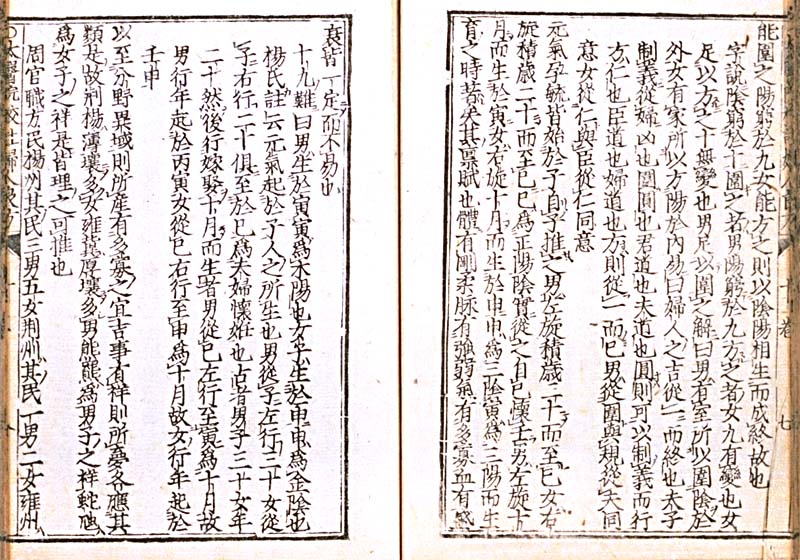 能圍之陽窮於九女能方之則以陰陽相生而成終故也
字說陰窮於十圍之者男陽窮於九方之者女九有變也女
足以方之十無變也男足以圍之解曰男有室所以圍陰於
外女有家所以方陽於內易曰婦人之吉從一而終也夫子
制義從婦凶也圍圓也君道也夫道也圓則可以制義而行
方仁也臣道也婦道也方則從一而巳男從圍與規從夫同
意女從仁與臣從仁同意
元氣孕毓皆始於子自子推之男左旋積歲三十而至巳女右
旋積歲二十而至巳巳為正陽陰實從之自巳懷壬男左旋十
月而生於寅女右旋十月而生於申申為三陰寅為三陽而生
育之時著矣其稟賦也體有剛柔脉有強弱氣有多寡血有盛
七
衰皆一定而不易也
十九難曰男生於寅寅為木陽也女子生於申申為金陰也
楊氏註云元氣起於子人之所生也男從子左行三十女從
子右行二十俱至於巳為夫婦懷姙也古者男子三十女年
二十然後行嫁娶十月而生者男從巳左行至寅為十月故
男行年起於丙寅女從巳右行至申為十月故女行年起於
壬申
以至分野異域則所產有多寡之宜吉事有祥則所夢各應其
類是故荊楊薄壤多女雍冀厚壤多男熊羆為男子之祥蛇虺
為女子之祥是皆理之可推也
周官職方氏楊州其民三男五女荊州其民一男二女雍州